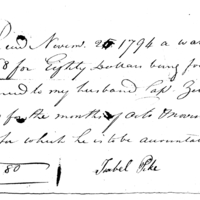 Recd Novem. 26 1794 a war
for Eighty Dollars being for
to my husband Cap. Zeb
for the month of Octo & Novem
for which he is to be accountable
80 Isabel Pike